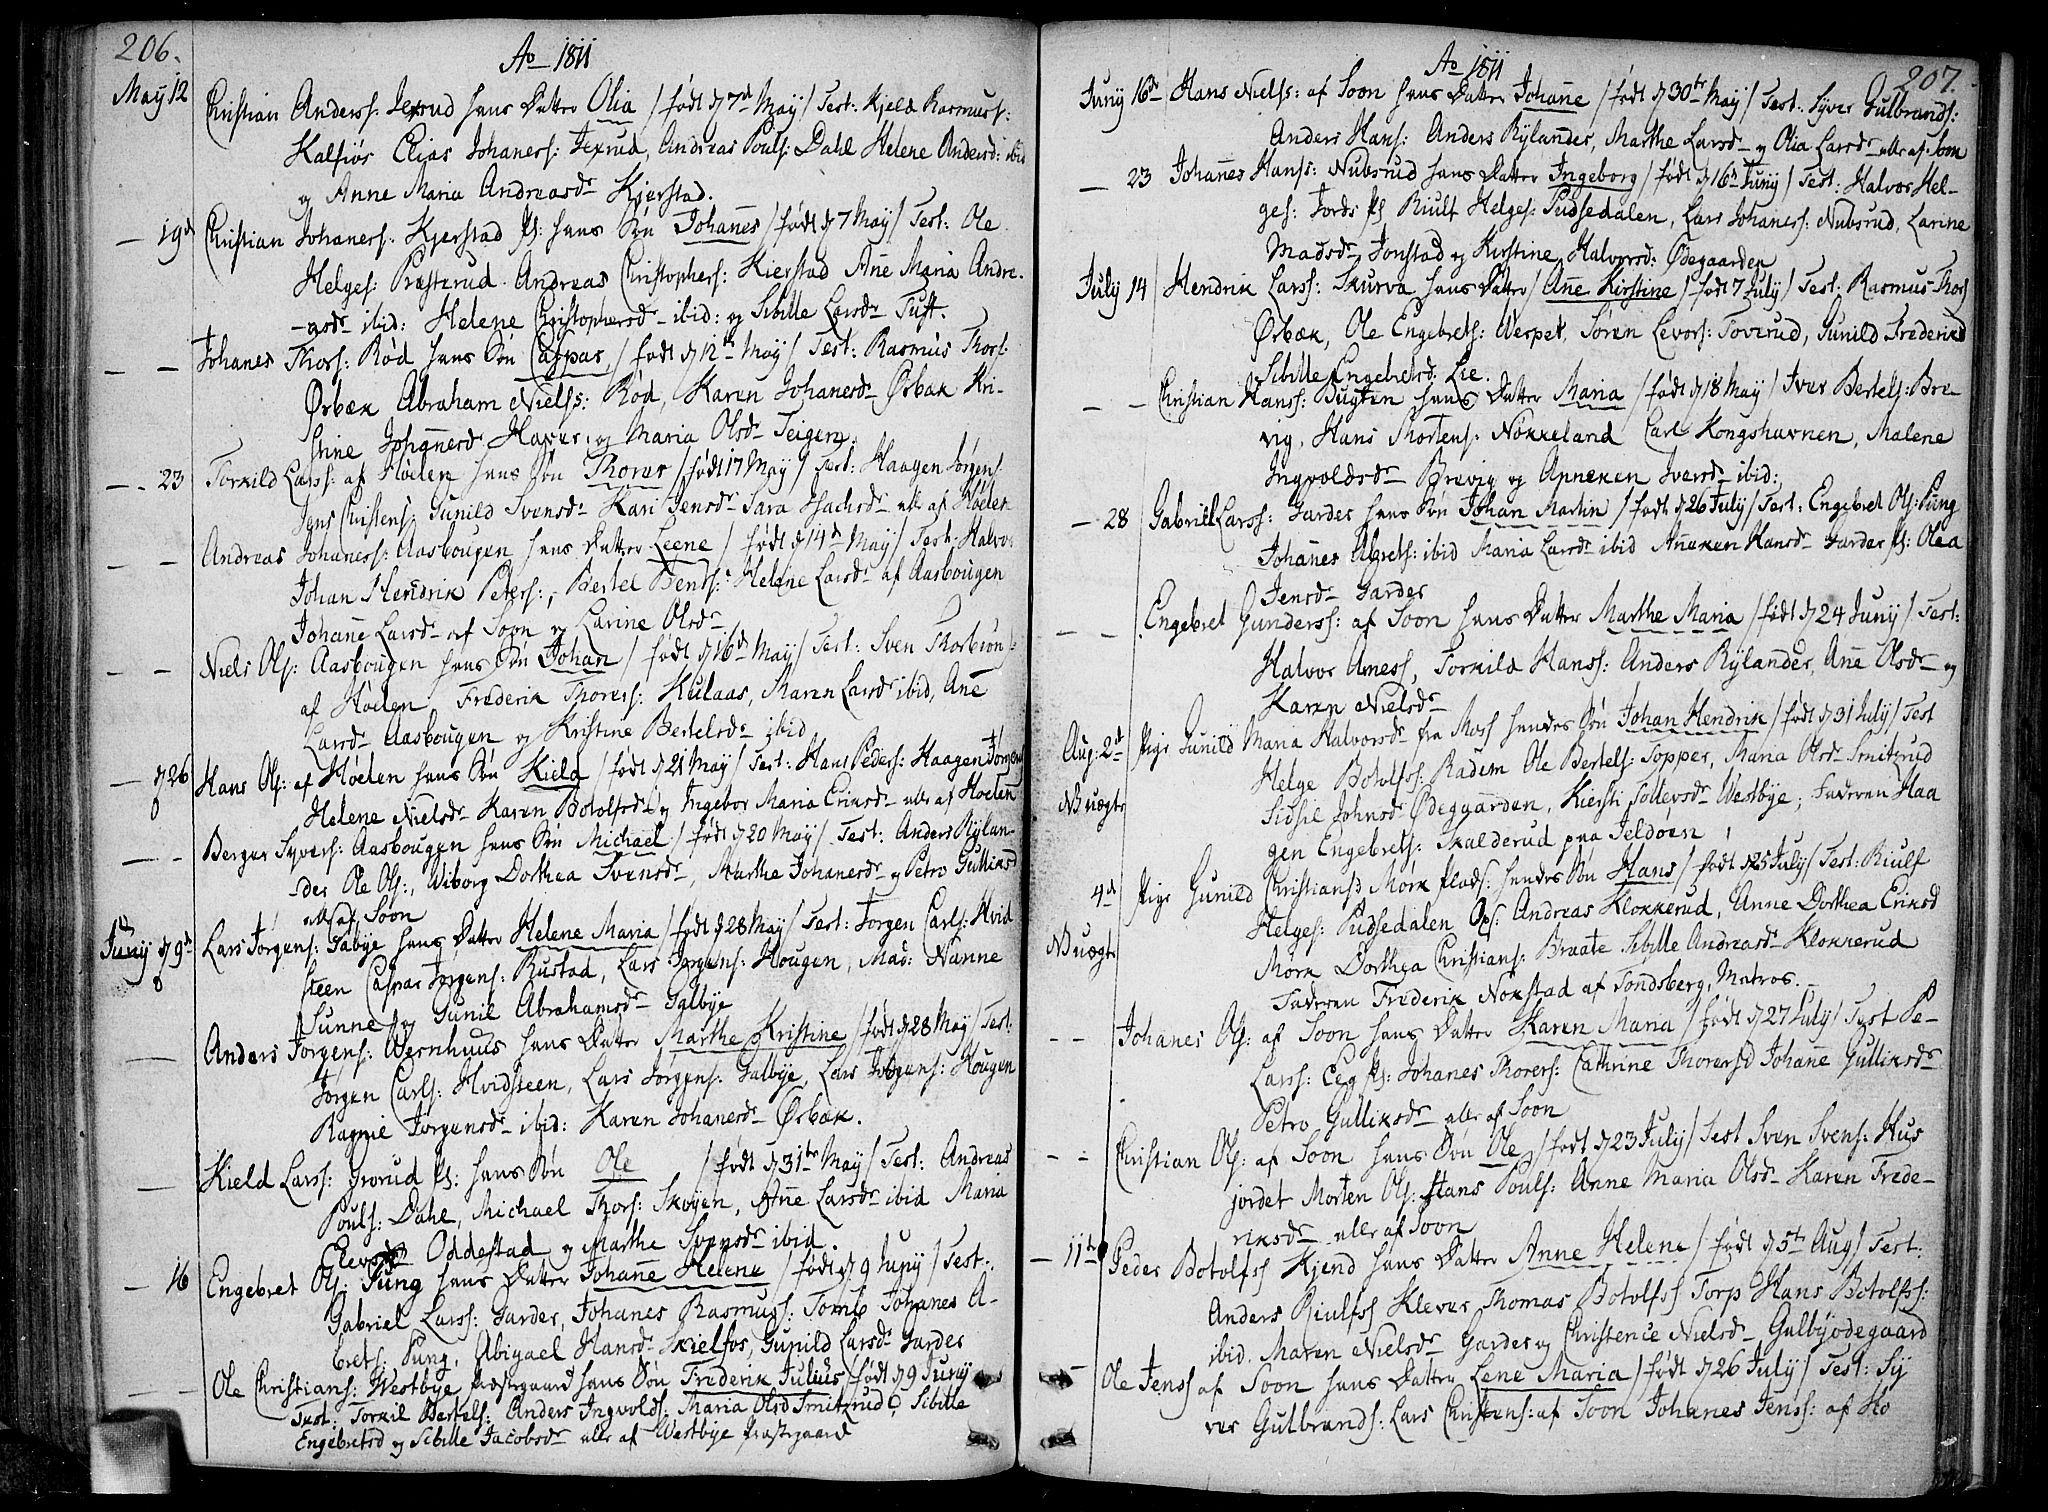 206.
Ao 1811
May 12 Christian Anders: Jexrud hans Datter Olia / født d 7d May / Test: Kjeld Rasmus:
Kalfiøs Elias Johaners: Jexrud, Andreas Pouls: Dahl Helene Andersd: ibid
og Anne Maria Andreasdr Kjerstad.
— 19d Christian Johaners: Kjerstad Pl: hans Søn Johannes / født d 7 May / Test: Ole
Helges: Præsterud. Andreas Christophers: Kierstad Ane Maria Andre-
asdr ibid: Helene Christophersdr ibid: og Sibille Larsdr Tuft.
— — Johanes Thors: Rød hans Søn Caspar / født d 12te May / Test: Rasmus Thors:
Ørbæk Abraham Niels: Rød, Karen Johanesdr Ørbæk Kri-
stine Johanesdr Haver, og Maria Olsdr Teigen.
— 23 Torkild Lars: af Hølen hans Søn Thorer / født 17 May / Test: Haagen Jørgens:
Jens Christens: Gunild Svensdr Kari Jensdr Sara Isachsdr alle af Hølen
— — Andreas Johaness: Aasbougen hans Datter Leene / født d 14d May / Test: Halvor
Johan Hendrik Peters:, Bertel Bents: Helene Larsdr af Aasbougen
Johane Larsdr af Soon og Larine Olsdr
— — Niels Ols: Aasbougen hans Søn Johan / født d 16d May / Test: Sven Thorbiøns:
af Hølen Frederik Thorers: Kulaas, Maren Larsdr ibid, Ane
Larsdr Aasbougen og Kristine Bertelsdr ibid
— d 26 Hans Ols: af Hølen hans Søn Kield / født d 21 May / Test: Hans Peders: Haagen Jørgens
Helene Nielsdr Karen Botolfsdr og Ingebor Maria Eriksdr alle af Hølen
— — Berger Syvers: Aasbougen hans Søn Michael / født d 20 May / Test: Anders Rylan-
der Ole Ols:, Wiborg Dorthea Svensdr, Marthe Johanesdr og Petro Gulliksd
alle af Soon
Juny d 9d Lars Jørgens: Galbye hans Datter Helene Maria / født d 28 May / Test: Jørgen Carls: Hvid
steen Caspar Jørgens: Rustad, Lars Jørgens: Hougen, Mad: Nanne
Sunne og Gunil Abrahamsdr Galbye
— Anders Jørgens: Wernhuus hans Datter Marthe Kristine / født d 28 May / Test:
Jørgen Carls: Hvidsteen, Lars Jørgens: Galbye, Lars Jørgens: Hougen
Ragnil Jørgensdr ibid: Karen Johanesdr Ørbæk.
— Kield Lars: Pl: hans Søn Ole / født d 31te May / Test: Andreas
Pouls: Dahl, Michael Thors: Skoyen, Ane Larsdr ibid Maria
Oddestad og Marthe Svensdr ibid.
— 16 Engebret Ols: Pung hans Datter Johane Helene / født d 9 Juny / Test:
Gabriel Lars: Garder, Johanes Rasmus: Tomb Johanes A-
brets: Pung, Abigael Hansdr Kielfos, Gunild Larsdr Garder
— — Ole Christians: Westbye Præstegaard hans Søn Frederik Julius / født d 9 Juny
Test: Torkil Bertels: Anders Ingvolds: Maria Olsd Smitsrud, Sibille
Engebretsd og Sibille Jacobsdr alle af Westbye Præstegaard
Ao 1811
207.
Juny 16de Hans Niels: af Soon hans Datter Johane / født d 30te May / Test: Syver Gulbrands:
Anders Hans: Anders Rylander, Marthe Larsdr og Olia Larsdr alle af Soon
— 23 Johanes Hans: Nubsrud hans Datter Ingeborg / født d 16d Juny / Test: Halvor Hel-
ges: Jords Pl Riulf Helges: Pudsedalen, Lars Johanes: Nubsrud, Larine
Madsdr Jonstad og Kirstine Halvorsd: Ødegaarden
July 14 Hendrik Lars: Skurva hans Datter / Ane Kirstine / født 7 July / Test: Rasmus Thors
Ørbæk, Ole Engebrets: Wespet, Søren Levors: Toverud, Gunild Frederiksd
Sibille Engebretsd: Lie.
— — Christian Hans: Bugten hans Datter Maria / født d 18 May / Iver Bertels: Bre-
vig, Hans Mortens: Nokkeland Carl Kongshavnen, Malene
Ingvoldsdr Brevig og Anneken Iversdr ibid:
— 28 Gabriel Lars: Garder hans Søn Johan Martin / født d 26 July / Test: Engebret Ols: Pung
Johanes Abrets: ibid Maria Larsdr ibid Aneken Hansdr Garder Pl: Olea
Jensdr Garder
— — Engebret Gunders: af Soon hans Datter Marthe Maria / født d 24 Juny / Test:
Halvor Ames: Torkild Hans: Anders Rylander, Ane Olsdr og
Karen Nielsdr
Aug: 2d Pige Gunild Maria Halvorsdr fra Mos hendes Søn Johan Hendrik / født d 31 July / Test
NB uægte Helge Botolfs: Radem Ole Bertels: Topper, Maria Olsdr Smitsrud
Sidsil Johnsdr Ødegaarden, Kiersti Tollevsdr Westbye; Faderen Haa
gen Engebrets: Skalderud paa Jeløen
4d Pige Gunild Christiansd Mørk Plads: hendes Søn Hans / født d 25 July / Test: Riulf
NB uægte Helges: Pudsedalen Ops: Andreas Klokkerud, Anne Dorthea Eriksd
Mørk Dorthea Christians: Braate Sibille Andreasdr Klokkerud
Faderen Frederik Nokstad af Tønsberg, Matros.
— — Johanes Ols: af Soon hans Datter Karen Maria / født d 27 July / Test Pe-
Lars: Eeg Pl: Johanes Thorers: Cathrine Thorersd Johane Gulliksdr
Petro Gulliksdr alle af Soon
— — Christian Ols: af Soon hans Søn Ole / født d 23 July / Test Sven Svens: Hus
jordet Morten Ols: Hans Pouls: Anne Maria Olsdr Karen Frede-
riksdr alle af Soon
— 11te Peder Botolfs Kjend hans Datter Anne Helene / født d 5te Aug / Test:
Anders Riulfs Klever Thomas Botolfs Torp Hans Botolfs:
ibid. Maren Nielsdr Garder og Christence Nielsdr Galbyødegaard
— Ole Jens af Soon hans Datter Lene Maria / født d 26 July / Test: Sy
ver Gulbrands: Lars Christens: af Soon Johanes Jens: af Ho